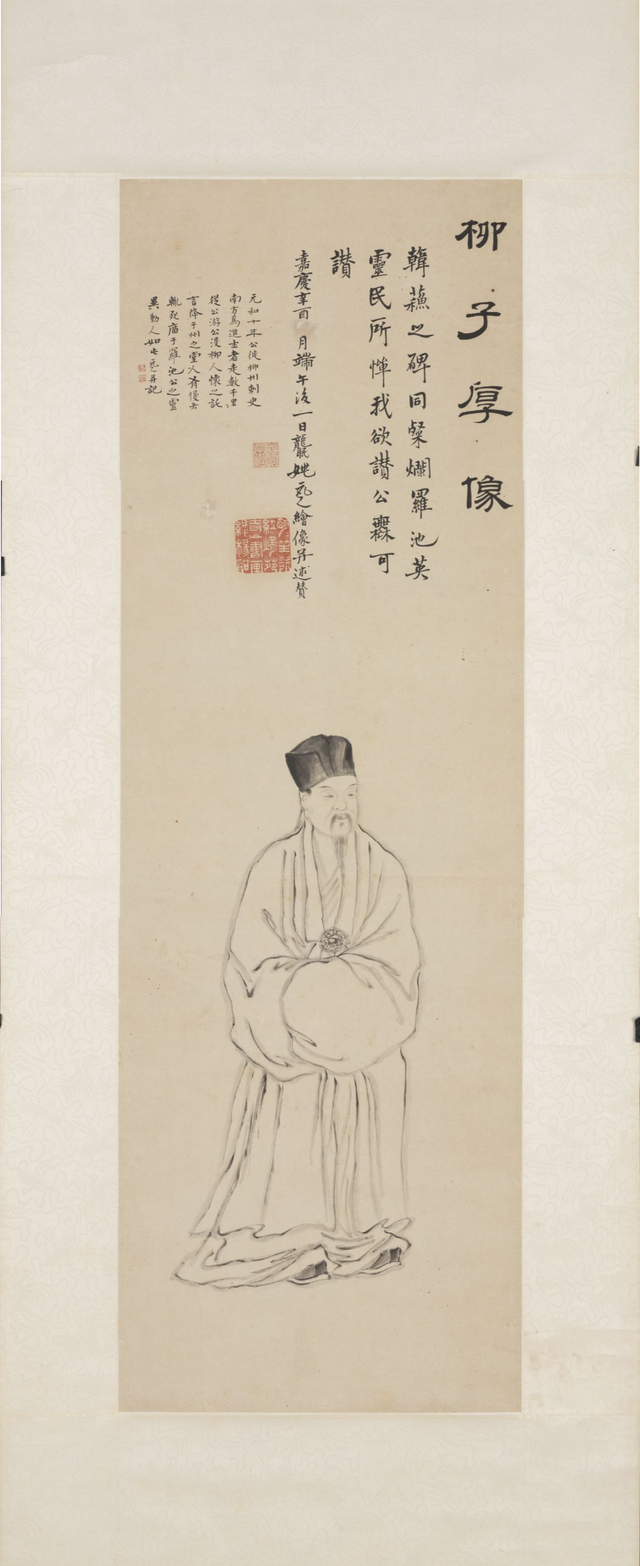 柳子厚像
韓蘓之碑同粲爛羅池英
靈民所憚我欲讃公無可
讃
嘉慶辛酉 月端午後一日龍眠姚元之繪像并述贊
元和十年公徙柳州刺史
南方為進士者走數千里
從公游公没柳人懷之託
言降于州之堂人有慢者
輒死廟于羅池公之靈
異動人如此元之并記